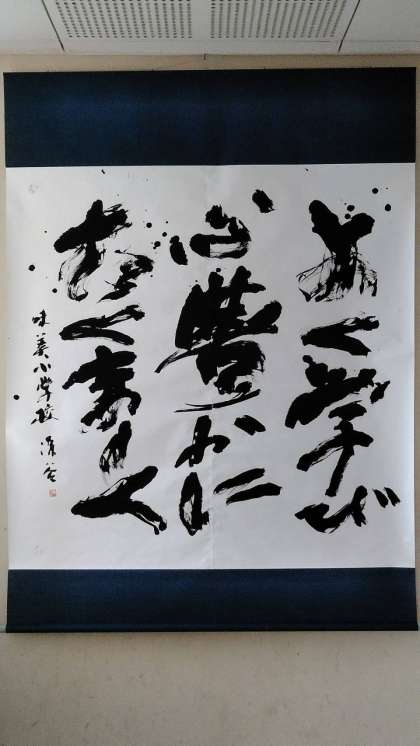 よく学び
心豊かに
たくましく
味美小学校